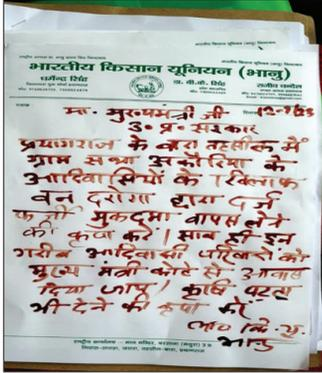 भारतीय किसान यूनियन (भानु)
धर्मेन्द्र सिंह
डा. बी.के. सिंह
राजीव चन्देल
मा. मुख्यमंत्री जी
उ० प्र० सरकार
प्रयागराज के बारा तहसील में
ग्राम सभा
आदिवासियों के खिलाफ
वन दरोगा द्वारा दर्ज
फर्जी मुकदमा वापस लेने
की कृपा करें। साथ ही इन
गरीब आदिवासी परिवारों को
मुख्य मंत्री कोटे से आवास
दिया जाए। कृषि पट्टा
भी देने की कृपा करें
भा० कि. यू.
भानु